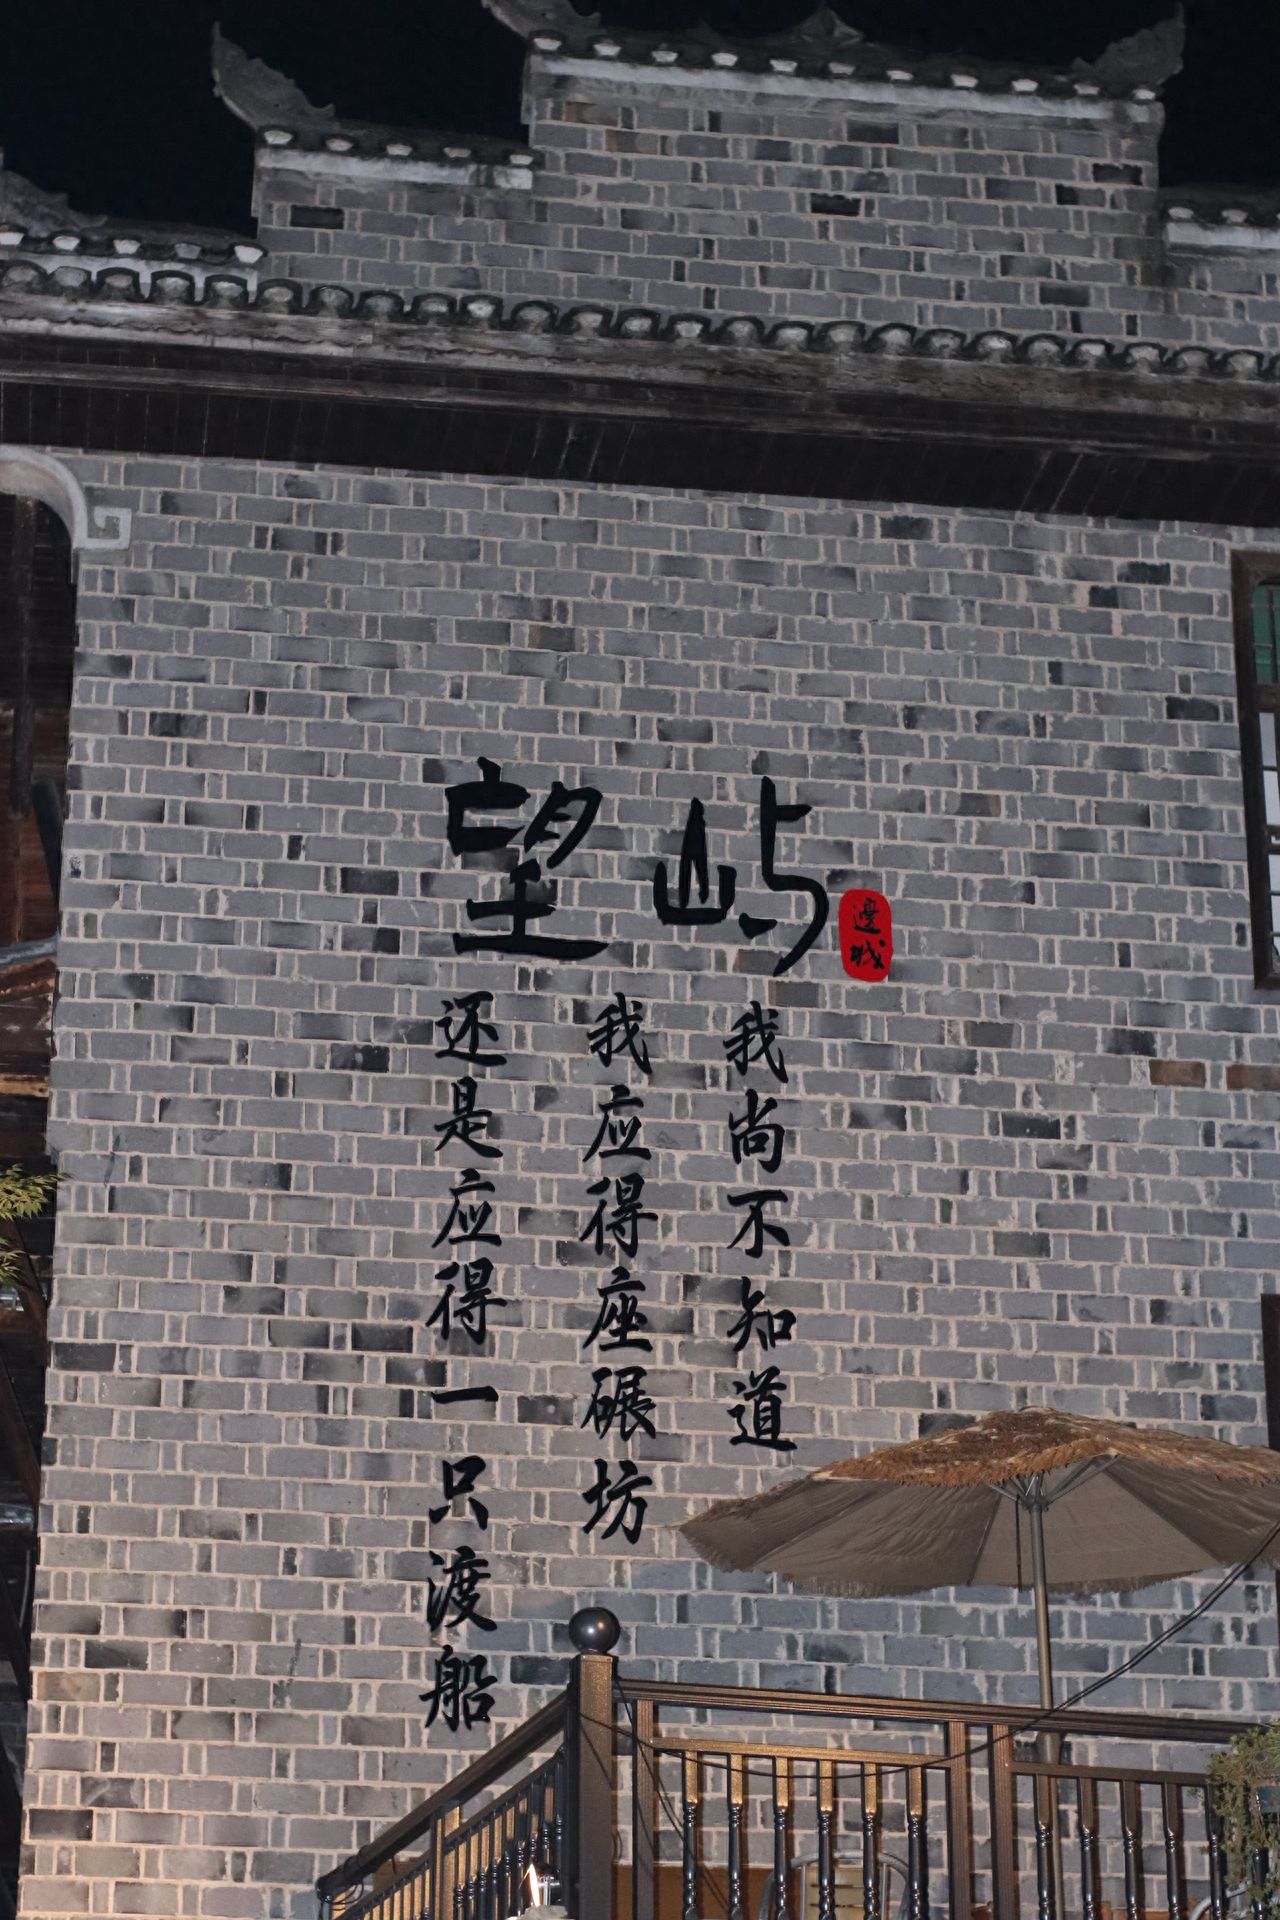 望屿
邊城
我尚不知道
我应得座碾坊
还是应得一只渡船